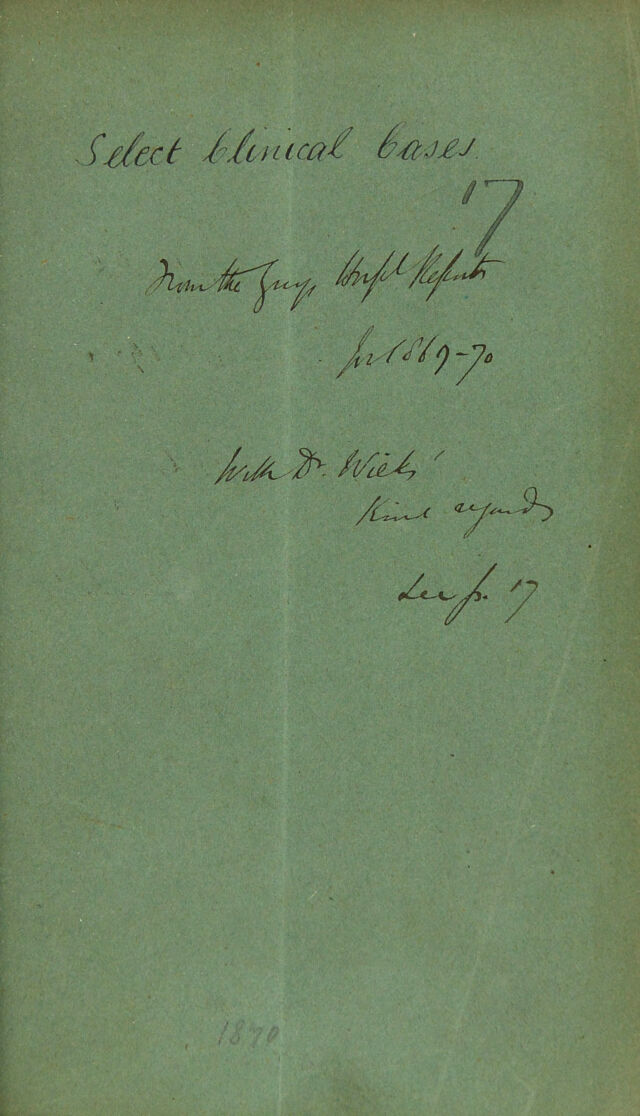 Select Clinical Cases.
17
From the Guys Hospl Reports
for 1869-70
With Dr. Wilks'
Kind regards
See p. 17
1870